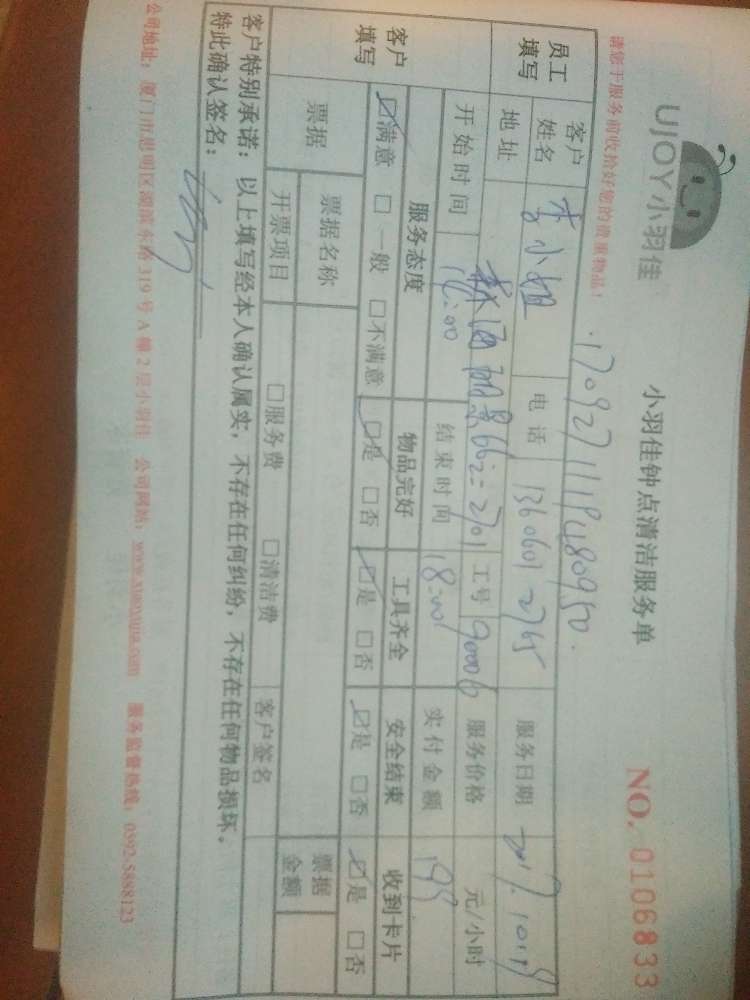 UJOY小羽佳
小羽佳钟点清洁服务单
NO. 0106833
请您于服务前收拾好您的贵重物品!
员工填写 客户姓名 李小姐 电话 服务日期
地址 工号 90006 服务价格 元/小时
客户填写 开始时间 16:00 结束时间 18:00 实付金额
服务态度 物品完好 工具齐全 安全结束 收到卡片
☑满意 □一般 □不满意 ☑是 □否 ☑是 □否 ☑是 □否 ☑是 □否
票据 票据名称 票据金额
开票项目 □服务费 □清洁费 客户签名
客户特别承诺:以上填写经本人确认属实,不存在任何纠纷,不存在任何物品损坏,
特此确认签名:
公司地址:厦门市思明区湖滨东路319号A幢2层小羽佳 公司网站: www.xiaoyujia.com 服务监督热线:0592-5888123